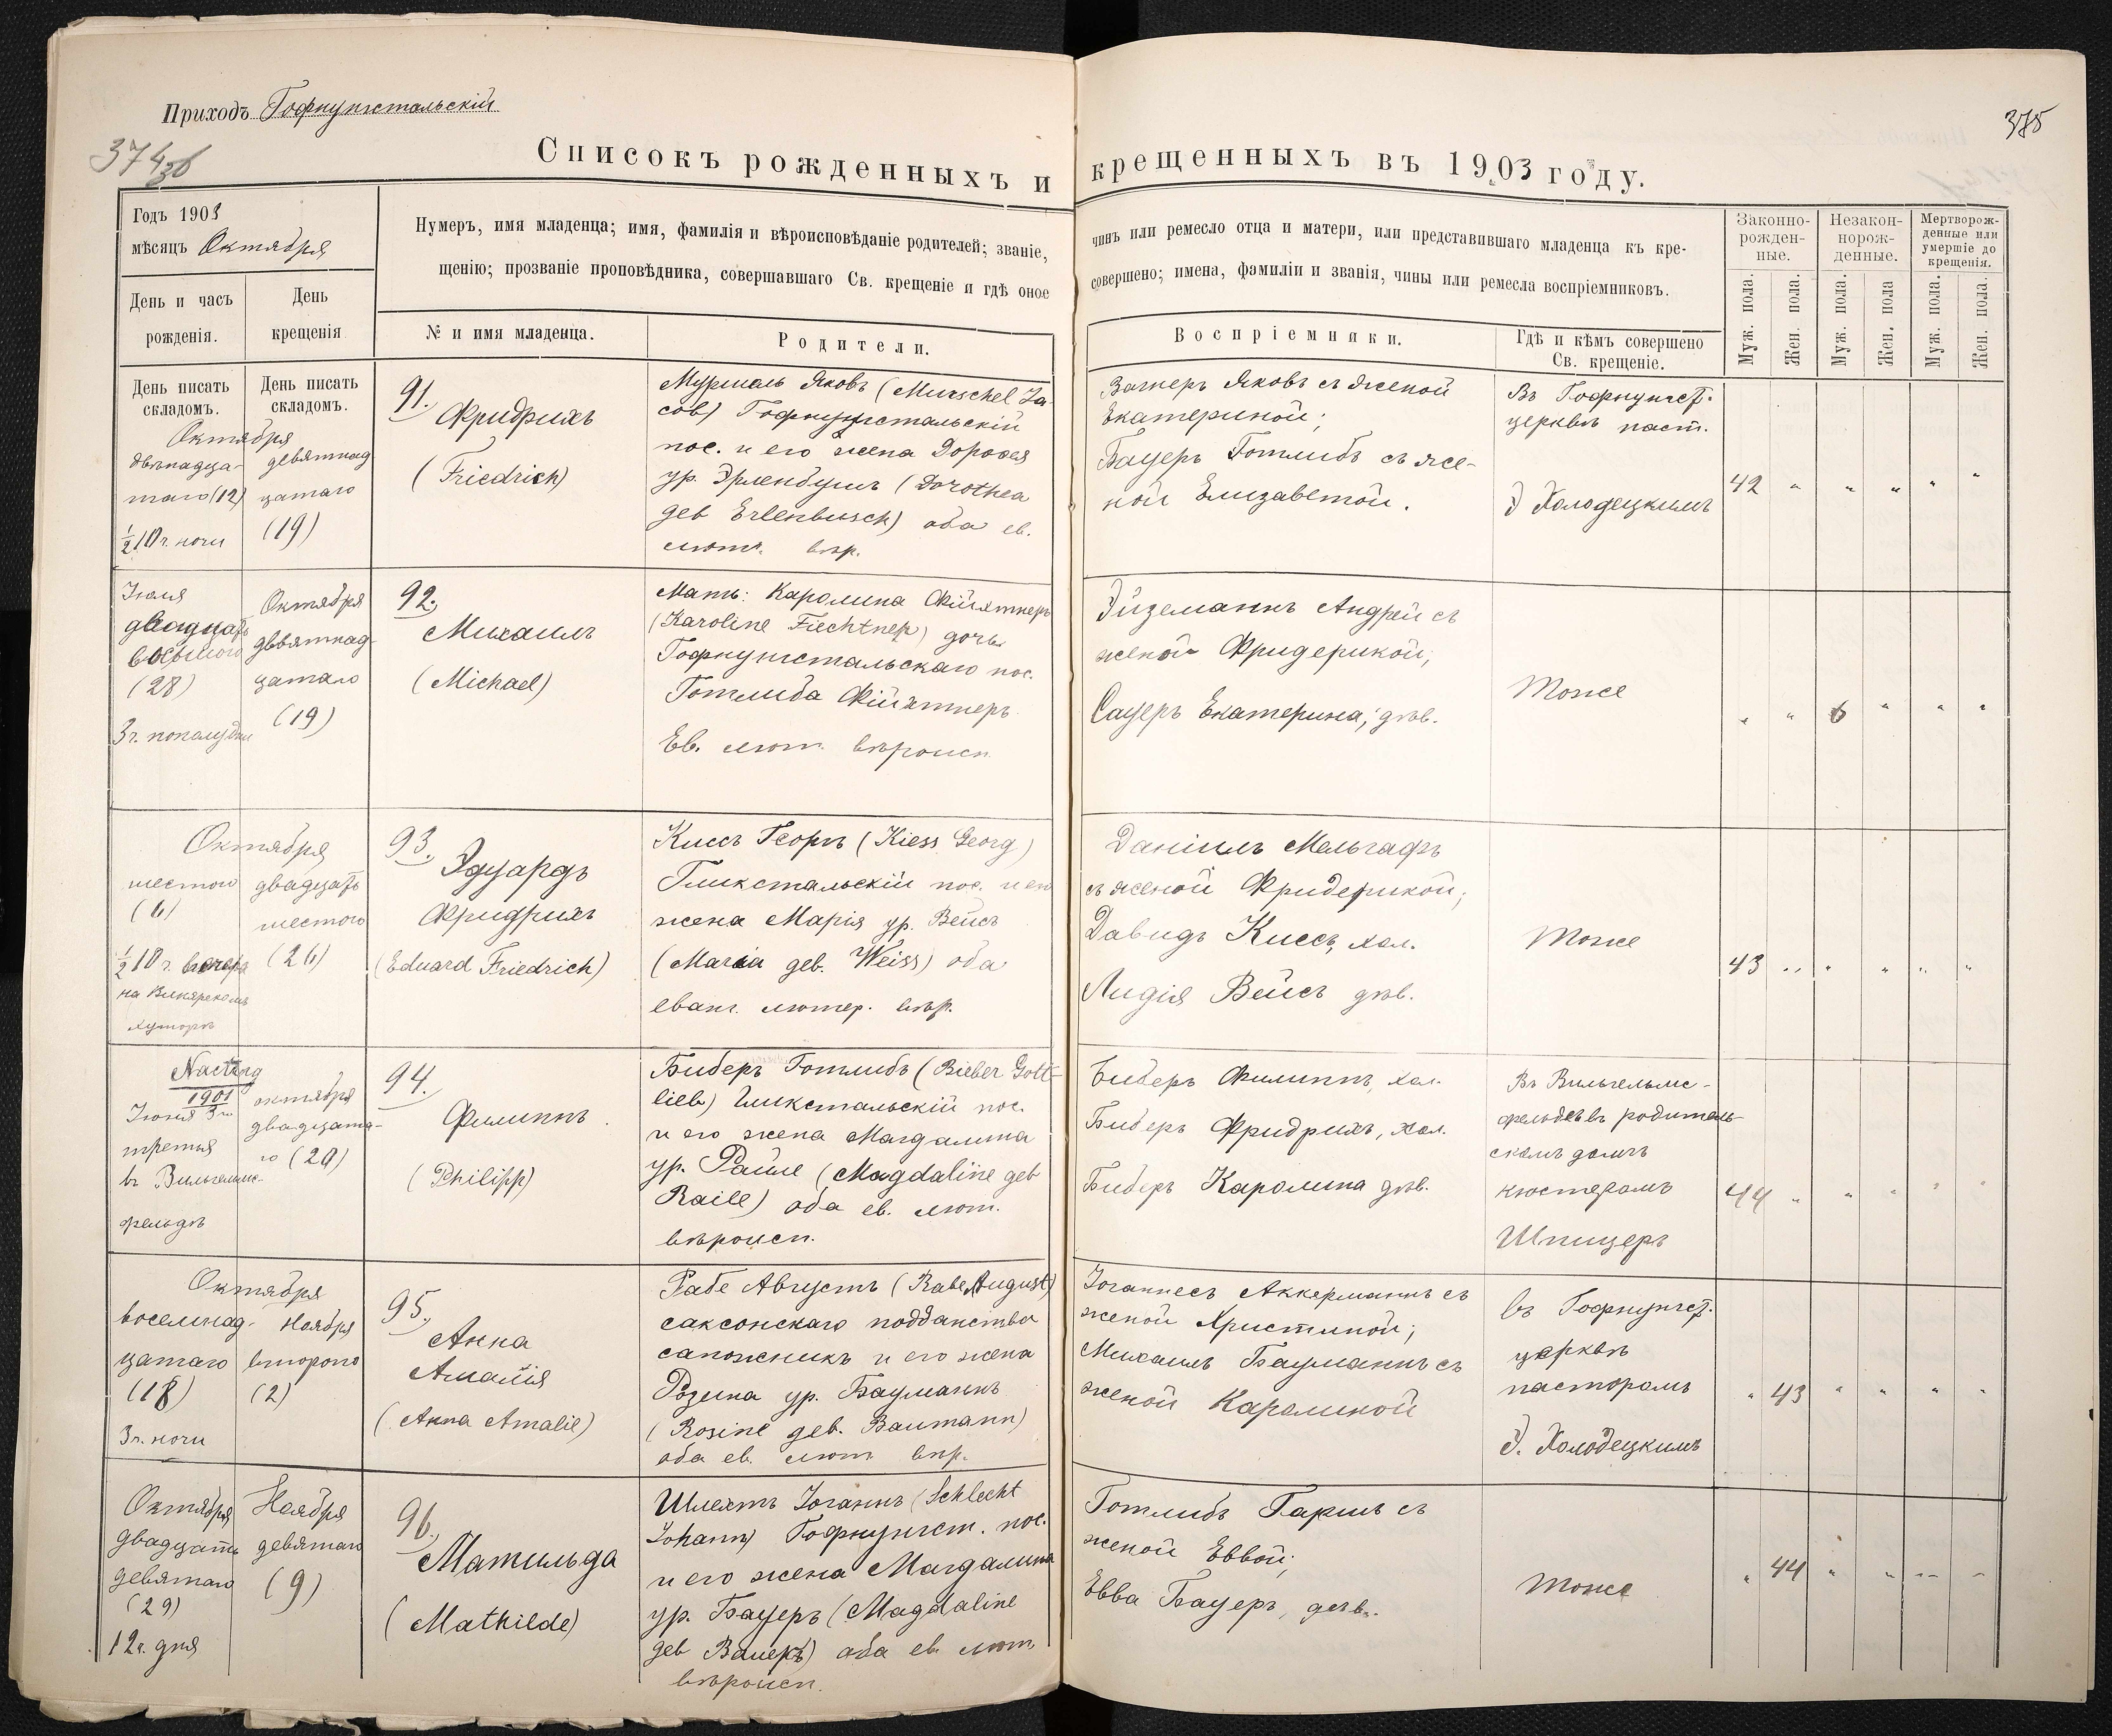 Приходъ Гофнунгстальскій
374 об
375
Списокъ рожденныхъ и крещенныхъ въ 1903 году.
Годъ 1903
мѣсяцъ Октября
День и часъ
рожденія.
День
крещенія
Нумеръ, имя младенца; имя, фамилія и вѣроисповѣданіе родителей; званіе,
чинъ или ремесло отца и матери, или представившаго младенца къ кре-
щенію; прозваніе проповѣдника, совершавшаго Св. крещеніе и гдѣ оное
совершено; имена, фамиліи и званія, чины или ремесла воспріемниковъ.
№ и имя младенца.
Родители.
Воспріемники.
Гдѣ и кѣмъ совершено
Св. крещеніе.
Законно-
рожден-
ные.
Незакон-
норож-
денные.
Мертворож-
денные или
умершіе до
крещенія.
Муж. пола.
Жен. пола.
Муж. пола.
Жен. пола
Муж. пола.
Жен. пола.
День писать
складомъ.
День писать
складомъ.
Октября
двѣнадца-
таго (12)
½10 ч. ночи
девятнад
цатаго
(19)
91.
Фридрихъ
(Friedrich)
Муршель Яковъ (Murschel Ja-
cob) Гофнунгстальскій
пос. и его жена Доротея
ур. Эрленбушъ (Dorothea
geb Erlenbusch) оба ев.
лют. вѣр.
Вагнеръ Яковъ съ женой
Екатериной;
Бауеръ Готлибъ съ же-
ной Елизаветой.
Въ Гофнунгст.
церквѣ паст.
Э Холодецкимъ
42 " " " " "
Іюля
двадцать
восьмого
(28)
3 ч. пополудни
Октября
девятнад-
цатаго
(19)
92.
Михаилъ
(Michael)
Мать: Каролина Фійхтнеръ
(Karoline Fiechtner) дочь
Гофнунгстальскаго пос.
Готлиба Фійхтнеръ
Ев. лют. вѣроисп.
Эйземаннъ Андрей съ
женой Фридерикой;
Сауеръ Екатерина, дѣв.
Тоже
" " 6 " " "
Октября
шестого
(6)
½10 ч. вечера
на
хуторѣ
двадцать
шестого
(26)
93.
Эдуардъ
Фридрихъ
(Eduard Friedrich)
Киссъ Георгъ (Kiess Georg)
Гликстальскій пос. и его
жена Марія ур. Вейсъ
(Maria geb. Weiss) оба
еванг. лютер. вѣр.
Даніилъ Мельгафъ
съ женой Фридерикой;
Давидъ Киссъ, хол.
Лидія Вейсъ дѣв.
Тоже
43 " " " " "
Nachtrag
1901
Іюня 3 го
третья
въ Вильгельмс-
фельдѣ
октября
двадцата-
го (20)
94.
Филиппъ
(Philipp)
Биберъ Готлибъ (Bieber Gott-
lieb) Гликстальскій пос.
и его жена Магдалина
ур. Райле (Magdaline geb
Raile) оба ев. лют.
вѣроисп.
Биберъ Филиппъ, хол.
Биберъ Фридрихъ, хол.
Биберъ Каролина дѣв.
Въ Вильгельмс-
фельдѣ въ родитель-
скомъ домѣ
кюстеромъ
Шпицеръ
44 " " " " "
Октября
восемнад-
цатаго
(18)
3 ч. ночи
Ноября
второго
(2)
95.
Анна
Амалія
(Anna Amalie)
Рабе Августъ (Rabe August)
саксонскаго подданства
сапожникъ и его жена
Розина ур. Бауманнъ
(Rosine geb. Baumann)
оба ев. лют вѣр.
Іоганнесъ Аккерманнъ съ
женой Христиной;
Михаилъ Бауманнъ съ
женой Каролиной
въ Гофнунгст.
церквѣ
пасторомъ
Э. Холодецкимъ
" 43 " " " "
Октября
двадцать
девятаго
(29)
12 ч. дня
Ноября
девятаго
(9)
96.
Матильда
(Mathilde)
Шлехтъ Іоганнъ (Schlecht
Johann) Гофнунгст. пос.
и его жена Магдалина
ур. Бауеръ (Magdaline
geb Bauer) оба ев. лют
вѣроисп.
Готлибъ Гаршъ съ
женой Еввой;
Евва Бауеръ, дѣв.
тоже
" 44 " " " "